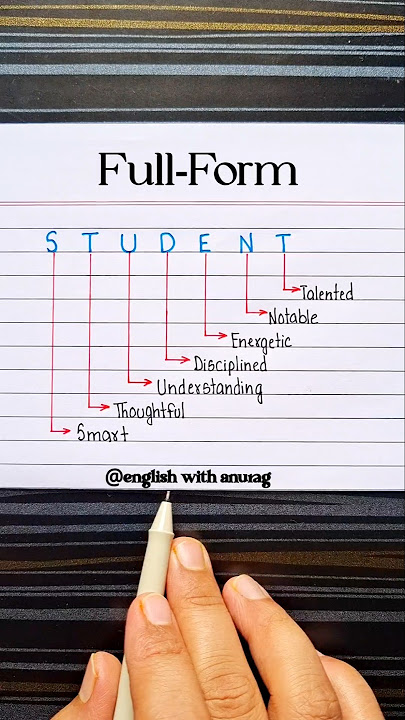 Full-Form
S T U D E N T
Talented
Notable
Energetic
Disciplined
Understanding
Thoughtful
Smart
@english with anurag